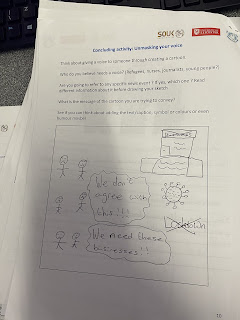 SOUK
Concluding activity: Unmasking your voice
Think about giving a voice to someone through creating a cartoon.
Who do you believe needs a voice? (Refugees, nurses, journalists, young people?)
Are you going to refer to any specific news event? If yes, which one? Read
different information about it before drawing your sketch.
What is the message of the cartoon you are trying to convey?
See if you can think about adding the text/caption, symbol or colours or even
humour needed
We don't
agree with
this!!!
Lockdown
We need these
businesses!!
10